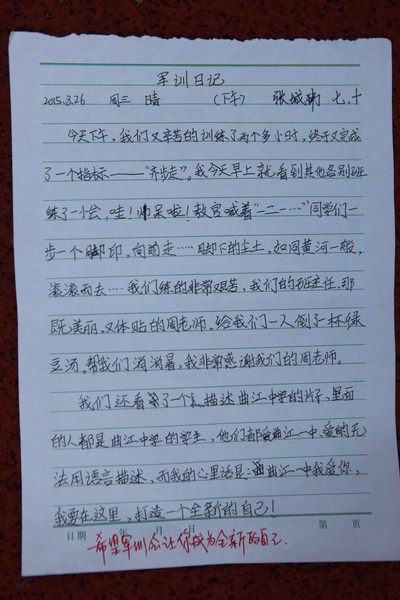 军训日记
2015.8.26 周三 晴 (下午) 张城玮 七.十
今天下午,我们又辛苦的训练了两个多小时,终于又完成
了一个指标——“齐步走”。我今天早上就看到其他各别班
练了一小会,哇!帅呆啦!教官喊着“一二一…”同学们一
步一个脚印,向前走……脚下的尘土,如同黄河一般,
滚滚而去……我们练的非常艰苦,我们的班主任,那
既美丽,又体贴的周老师。给我们一人倒了一杯绿
豆汤,帮我们消消暑,我非常感谢我们的周老师。
我们还看了一个描述曲江中学的片子,里面
的人都是曲江中学的学生,他们都爱曲江一中,爱的无
法用语言描述,而我的心里话是:曲江一中我爱你,
我要在这里,打造一个全新的自己!
日期 年 月 日 第 页
希望军训会让你成为全新的自己.